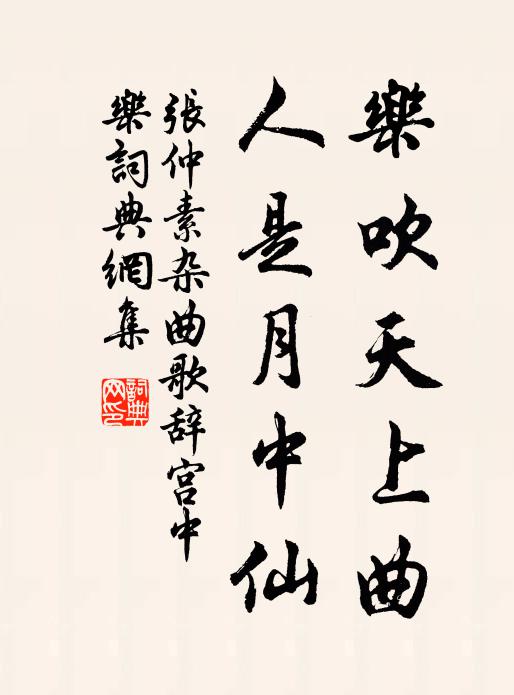 樂吹天上曲
人是月中仙
張仲素杂曲歌辞宫中
樂詞典網集
詞典网印